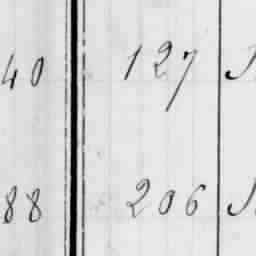 40 127
88 206